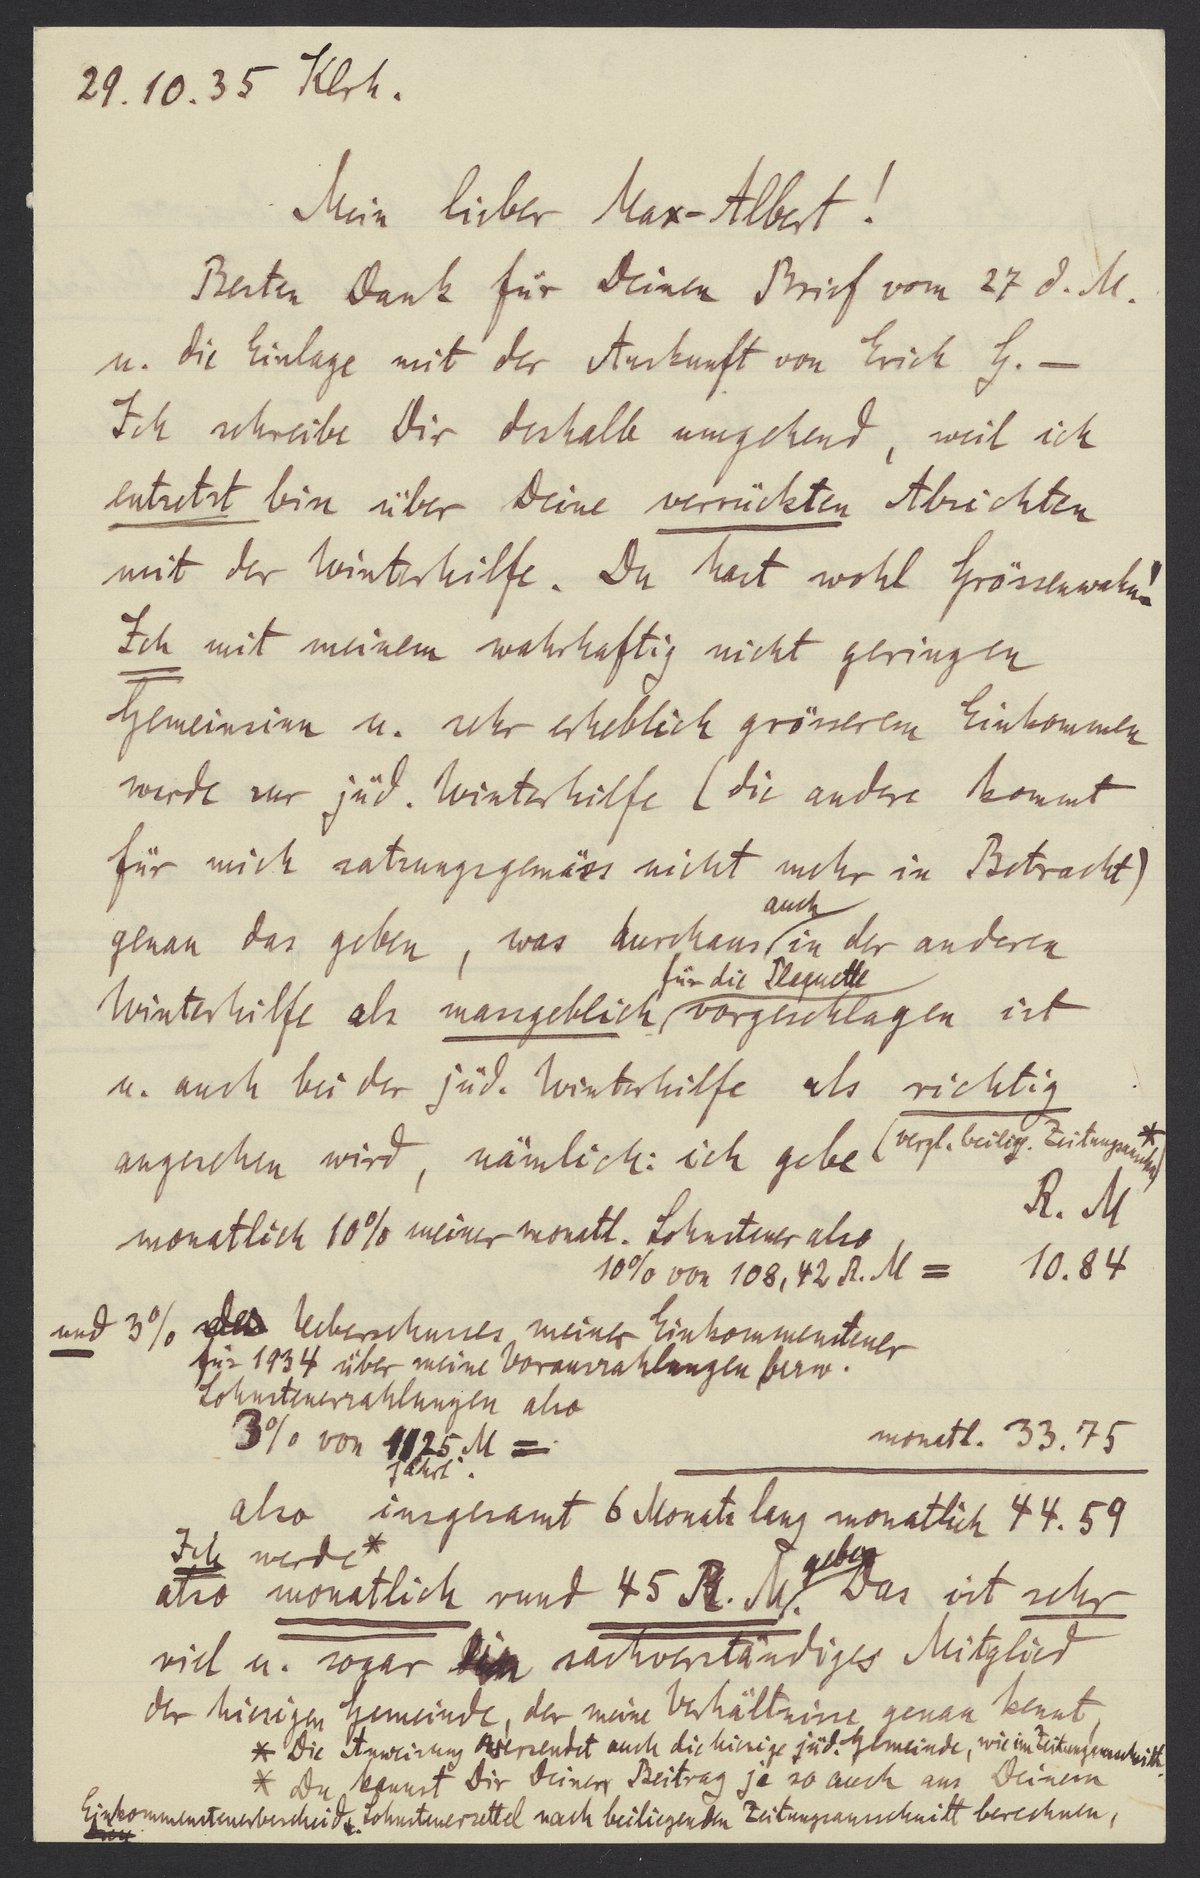 29.10.35 Klrh.
Mein lieber Max-Albert!
Besten Dank für Deinen Brief vom 27 d. M.
u. die Einlage mit der Auskunft von Erich G. —
Ich schreibe Dir deshalb umgehend, weil ich
entsetzt bin über Deine verrückten Absichten
mit der Winterhilfe. Du hast wohl Grössenwahn!
Ich mit meinem wahrhaftig nicht geringen
Gemeinsinn u. sehr erheblich grösserem Einkommen
werde zur jüd. Winterhilfe (die andere kommt
für mich satzungsgemäss nicht mehr in Betracht)
genau das geben, was durchaus auch in der anderen
Winterhilfe als massgeblich für die Plaquette vorgeschlagen ist
u. auch bei der jüd. Winterhilfe als richtig
angesehen wird, nämlich: ich gebe (vergl. beilig. Zeitungsausschn.*)
R. M
monatlich 10% meiner monatl. Lohnsteuer also
10% von 108,42 R. M = 10.84
und 3% des Ueberschusses meiner Einkommensteuer
für 1934 über meine Vorauszahlungen bezw.
Lohnsteuerzahlungen also
3% von 1125 M = monatl. 33.75
jährl.
also insgesamt 6 Monate lang monatlich 44.59
Ich werde*
also monatlich rund 45 R. M. geben Das ist sehr
viel u. sogar ein sachverständiges Mitglied
der hiesigen Gemeinde, der meine Verhältnisse genau kennt,
* Die Anweisung versendet auch die hiesige jüd. Gemeinde, wie im Zeitungsausschnitt.
* Du kannst Dir Deinen Beitrag ja so auch aus Deinem
Einkommensteuerbescheid u. Lohnsteuerzettel nach beiliegenden Zeitungsausschnitt berechnen,